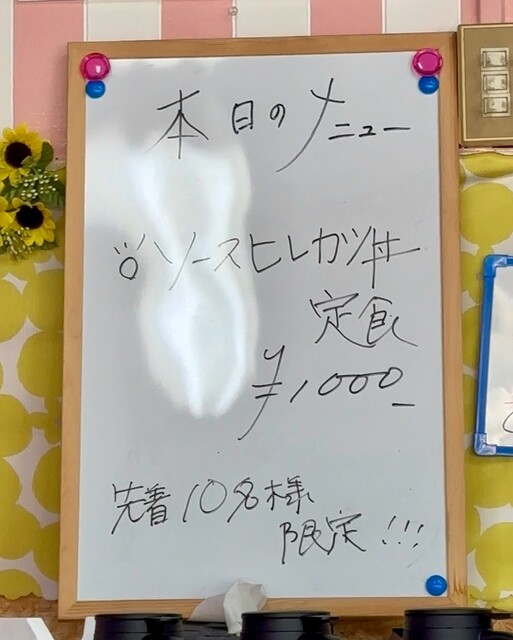 本日のメニュー
ソースヒレカツ丼
定食
¥1000-
先着10名様
限定!!!